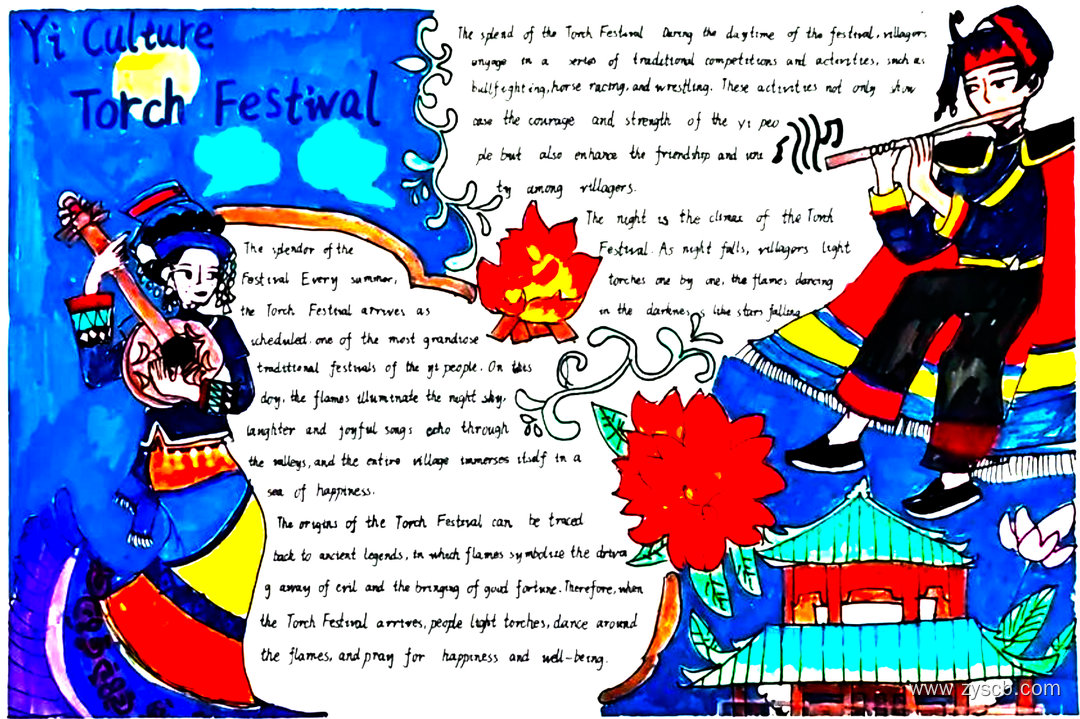 Yi Culture
Torch Festival
The splend of the Torch Festival During the daytime of the festival, villagers
engage in a series of traditional competitions and activities, such as
bullfighting, horse racing, and wrestling. These activities not only show
case the courage and strength of the yi peo
ple but also enhance the friendship and uni
ty among villagers.
The night is the climax of the Torch
Festival. As night falls, villagers light
torches one by one, the flames dancing
in the darkness like stars falling
The splendor of the
Festival Every summer,
the Torch Festival arrives as
scheduled. one of the most grandiose
traditional festivals of the yi people. On this
day, the flames illuminate the night sky,
laughter and joyful songs echo through
the valleys, and the entire village immerses itself in a
sea of happiness.
The origins of the Torch Festival can be traced
back to ancient legends, in which flames symbolize the drivin
g away of evil and the bringing of good fortune. Therefore, when
the Torch Festival arrives, people light torches, dance around
the flames, and pray for happiness and well-being.
www.zyscb.com